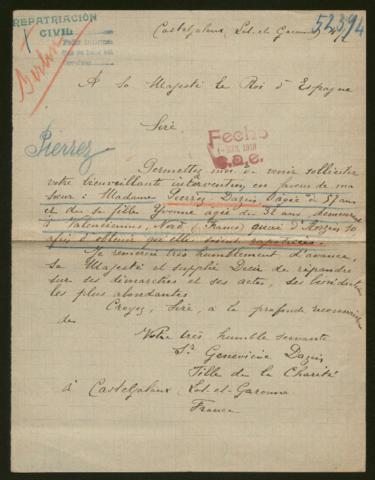 REPATRIACIÓN
CIVIL
52394
Casteljaloux, Lot et Garonne
Berlin
A Sa Majesté le Roi d'Espagne
Siré
Fecho
1918
S.a.e.
Pierrez
Permettez moi de venir solliciter
votre bienveillante intervention en faveur de ma
sœur : Madame Pierrez Dazin âgée de 57 ans
et de sa fille Yvonne âgée de 32 ans, demeurant
à Valenciennes, Nord (France) quai d'Anzin 10
afin d'obtenir que elles soient rapatriées.
Je remercie très humblement d'avance,
Sa Majesté et supplie Dieu de répandre
sur ses démarches et ses actes, ses bénédictions
les plus abondantes.
Croyez, Sire, à la profonde reconnaissance
de
Votre très humble servante
Sr Geneviève Dazin
Fille de la Charité
à Casteljaloux Lot-et-Garonne
France